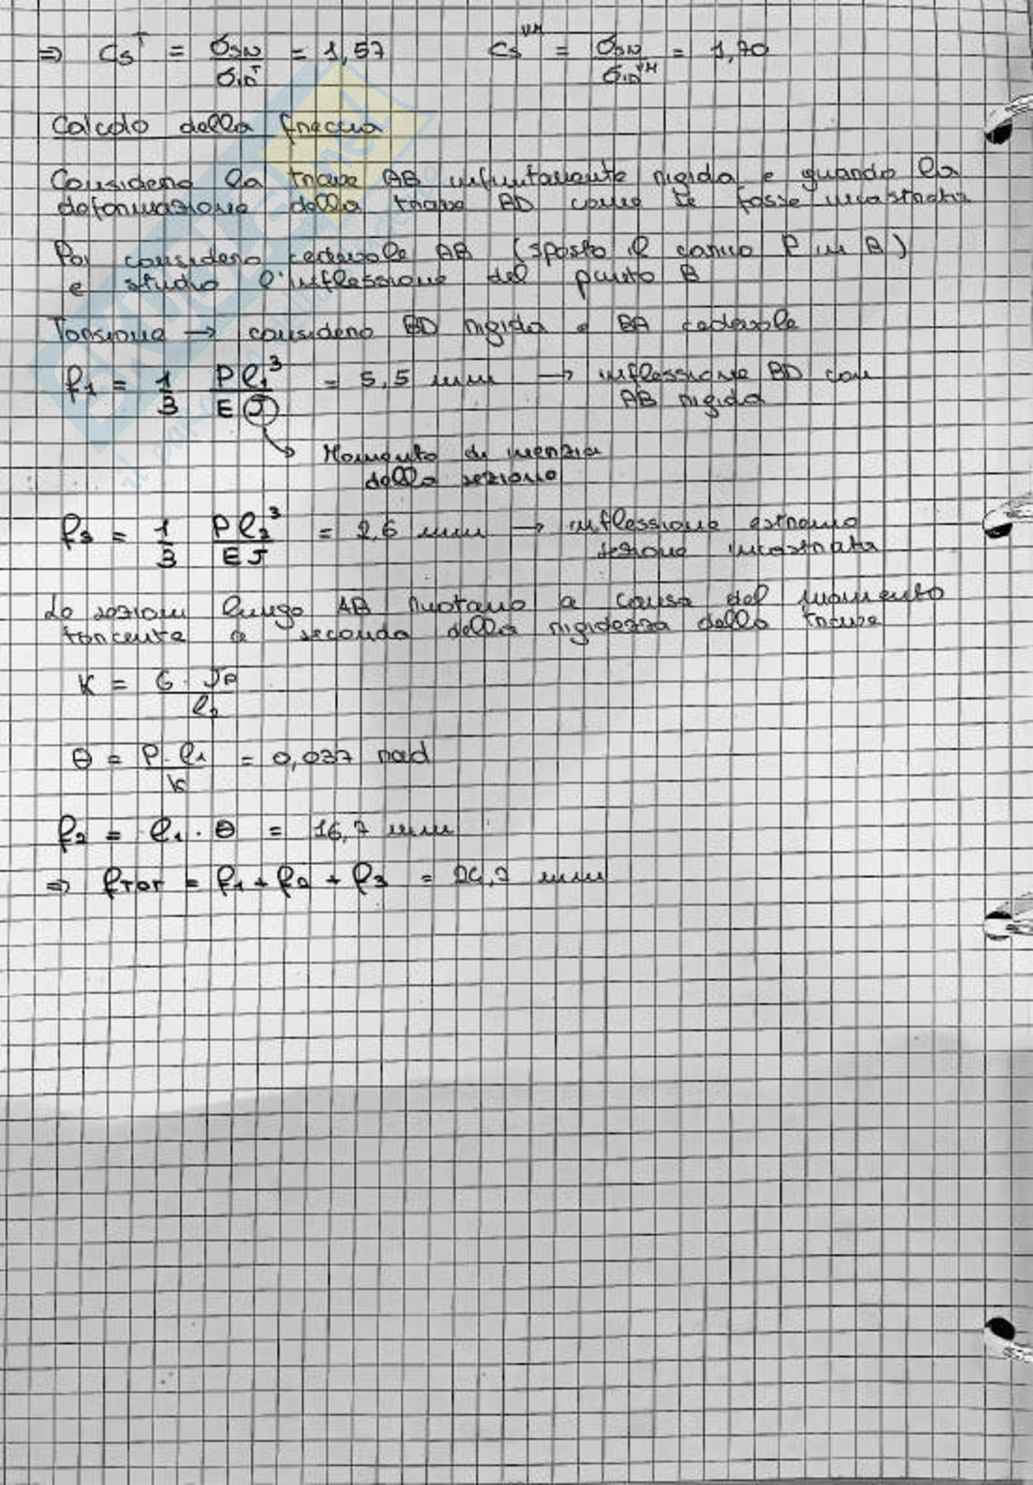 ⇒ Cs^T = σsn/σid^T = 1,57 Cs^VM = σsn/σid^VM = 1,70
Calcolo della freccia
Considero la trave AB infinitamente rigida e guardo la
deformazione della trave BD come se fosse incastrata
Poi considero cedevole AB (sposto il carico P in B)
e studio l'inflessione del punto B
Torsione → considero BD rigida e BA cedevole
f1 = 1/3 Pl1^3/EJ = 5,5 mm → inflessione BD con
AB rigida
Momento di inerzia
della sezione
f3 = 1/3 Pl2^3/EJ = 2,6 mm → inflessione estremo
sezione incastrata
Le sezioni lungo AB ruotano a causa del momento
torcente a seconda della rigidezza della trave
K = G · Jp/l2
θ = P · l1/k = 0,037 rad
f2 = l1 · θ = 16,7 mm
⇒ fTOT = f1 + f2 + f3 = 24,7 mm